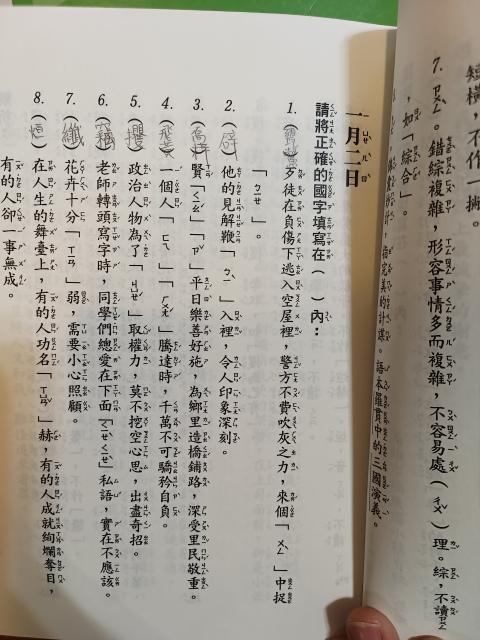 短橫，不作一捺。
7. ㄗㄨㄥ。錯綜複雜，形容事情多而複雜，不容易處（ㄔㄨˇ）理。綜，不讀ㄗㄨㄥˋ
，如「綜合」。
指完美的計謀。語本羅貫中的三國演義。
一月二日
請將正確的國字填寫在（　）內：
1.（甕鱉）歹徒在負傷下逃入空屋裡，警方不費吹灰之力，來個「ㄨㄥˋ」中捉
「ㄅㄧㄝ」。
2.（辟）他的見解鞭「ㄆㄧˋ」入裡，令人印象深刻。
3.（喬梓）賢「ㄑㄧㄠˊ」「ㄗˇ」平日樂善好施，為鄉里造橋鋪路，深受里民敬重。
4.（飛黃）一個人「ㄈㄟ」「ㄏㄨㄤˊ」騰達時，千萬不可驕矜自負。
5.（攫）政治人物為了「ㄐㄩㄝˊ」取權力，莫不挖空心思，出盡奇招。
6.（竊）老師轉頭寫字時，同學們總愛在下面「ㄑㄧㄝˋㄑㄧㄝˋ」私語，實在不應該。
7.（纖）花卉十分「ㄒㄧㄢ」弱，需要小心照顧。
8.（烜）在人生的舞臺上，有的人功名「ㄒㄩㄢˇ」赫，有的人成就絢爛奪目，
有的人卻一事無成。